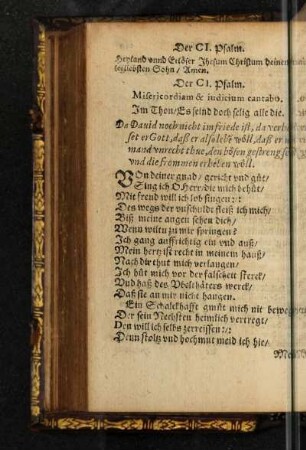 Der CI. Psalm.
Heyland vnnd Erlöser Jhesum Christum deinen
liebsten Sohn / Amen.
Der CI. Psalm.
Misericordiam & iudicium cantabo.
Im Thon / Es seind doch selig alle die.
Da Dauid noch nicht im friede ist, da
set er Gott, daß er also lebē wöll, daß er
mand vnrecht thue, den bösen gestreng
vnd die frommen erheben wöll.
VOn deiner gnad / gericht vnd güt /
Sing ich O Herr / die mich behüt /
Mit freud will ich lob singen :/:
Des wegs der vnschuldt fleiß ich mich /
Biß meine augen sehen dich /
Wenn wiltu zu mir springen?
Ich gang auffrichtig ein vnd auß /
Mein hertz ist recht in meinem hauß /
Nach dir thut mich verlangen /
Ich hüt mich vor der falscheit sterck /
Vnd haß des Vbelthäters werck /
Daß sie an mir nicht hangen.
Ein Schalckhafft gmüt mich nit
Der sein Nechsten heimlich vertregt /
Den will ich selbs zerreissen :/:
Denn stoltz vnd hochmut meid ich hie /